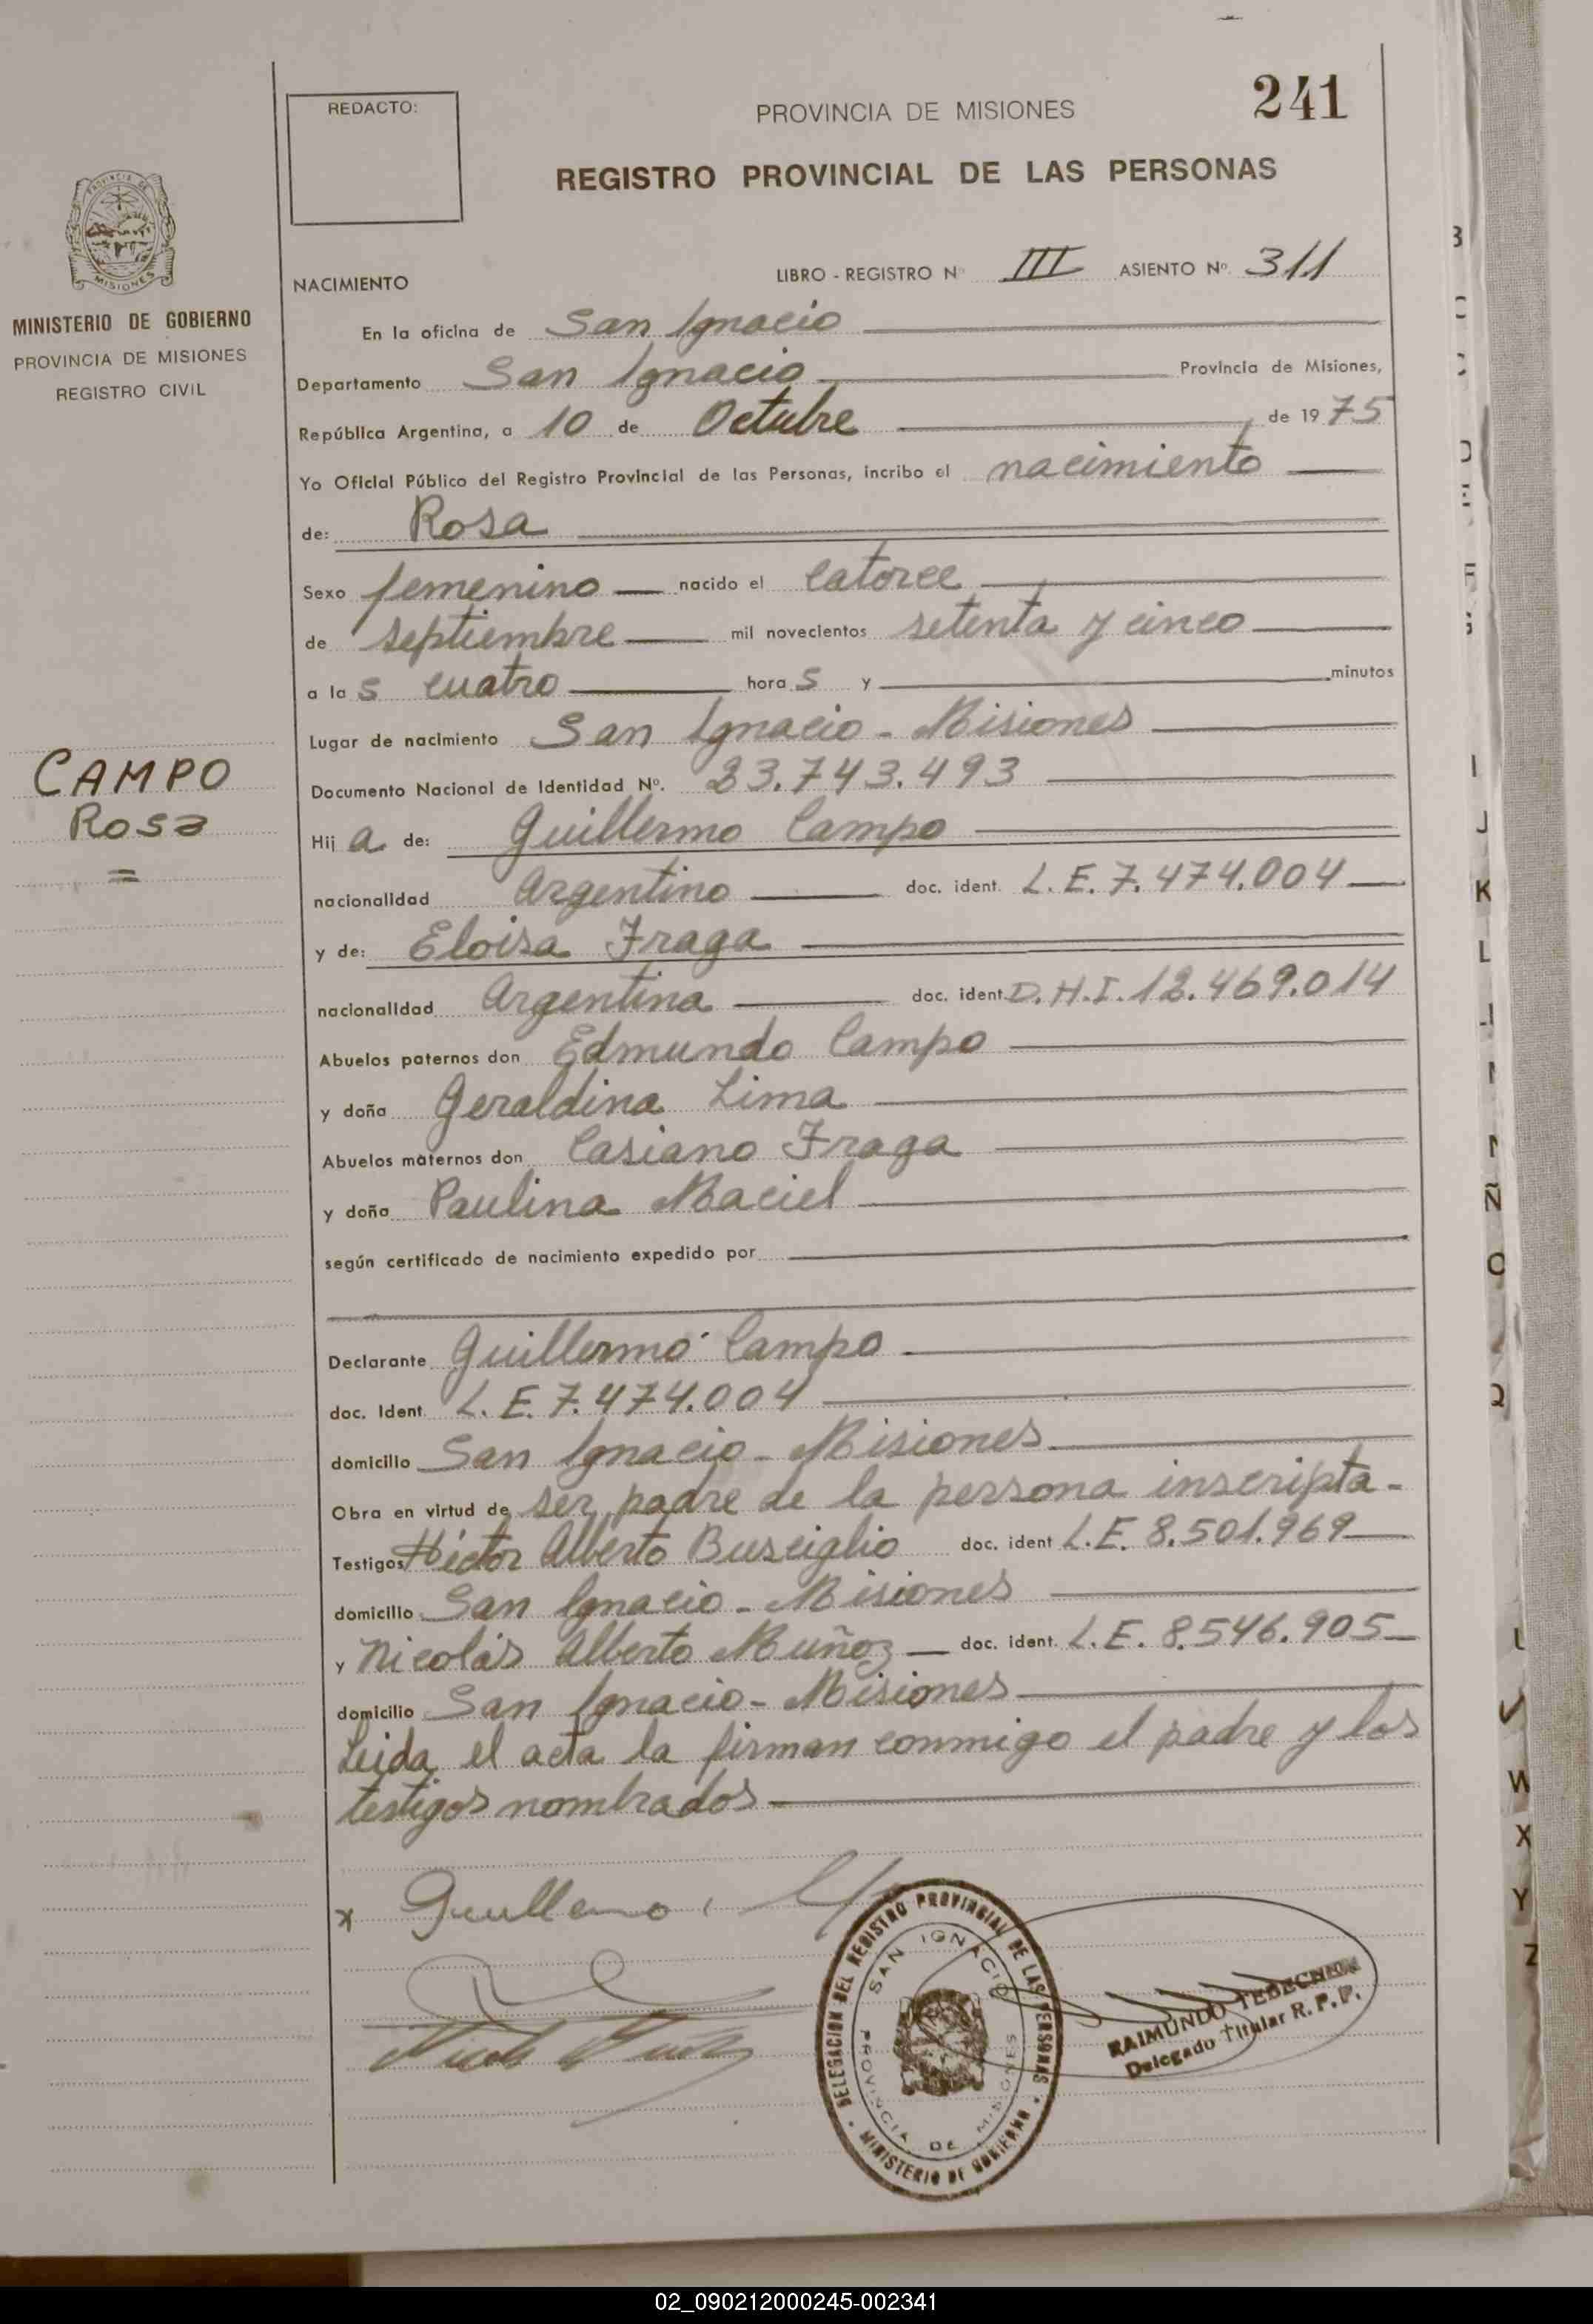 241
REDACTO:
PROVINCIA DE MISIONES
REGISTRO PROVINCIAL DE LAS PERSONAS
MINISTERIO DE GOBIERNO
PROVINCIA DE MISIONES
REGISTRO CIVIL
NACIMIENTO
LIBRO - REGISTRO Nº III ASIENTO Nº 311
En la oficina de San Ignacio
Departamento San Ignacio Provincia de Misiones,
República Argentina, a 10 de Octubre de 1975
Yo Oficial Público del Registro Provincial de las Personas, incribo el nacimiento
de: Rosa
Sexo femenino nacido el catorce
de septiembre mil novecientos setenta y cinco
a las cuatro horas y minutos
Lugar de nacimiento San Ignacio - Misiones
CAMPO
Rosa
Documento Nacional de Identidad Nº. 23.743.493
Hija de: Guillermo Campo
nacionalidad Argentino doc. ident. L.E. 7.474.004
y de: Eloisa Fraga
nacionalidad Argentina doc. ident. D.N.I. 12.469.014
Abuelos paternos don Edmundo Campo
y doña Geraldina Lima
Abuelos maternos don Casiano Fraga
y doña Paulina Maciel
según certificado de nacimiento expedido por
Declarante Guillermo Campo
doc. Ident. L.E. 7.474.004
domicilio San Ignacio - Misiones
Obra en virtud de ser padre de la persona inscripta -
Testigos Héctor Alberto Busciglio doc. ident L.E. 8.501.969
domicilio San Ignacio - Misiones
y Nicolás Alberto Muñoz doc. ident. L.E. 8.546.905
domicilio San Ignacio - Misiones
Leida el acta la firman conmigo el padre y los
testigos nombrados
x
DELEGACION DEL REGISTRO PROVINCIAL DE LAS PERSONAS
MINISTERIO DE GOBIERNO
SAN IGNACIO
PROVINCIA DE MISIONES
RAIMUNDO
Delegado Titular R. P. P.
K
L
Ñ
W
X
Y
Z
02_090212000245-002341